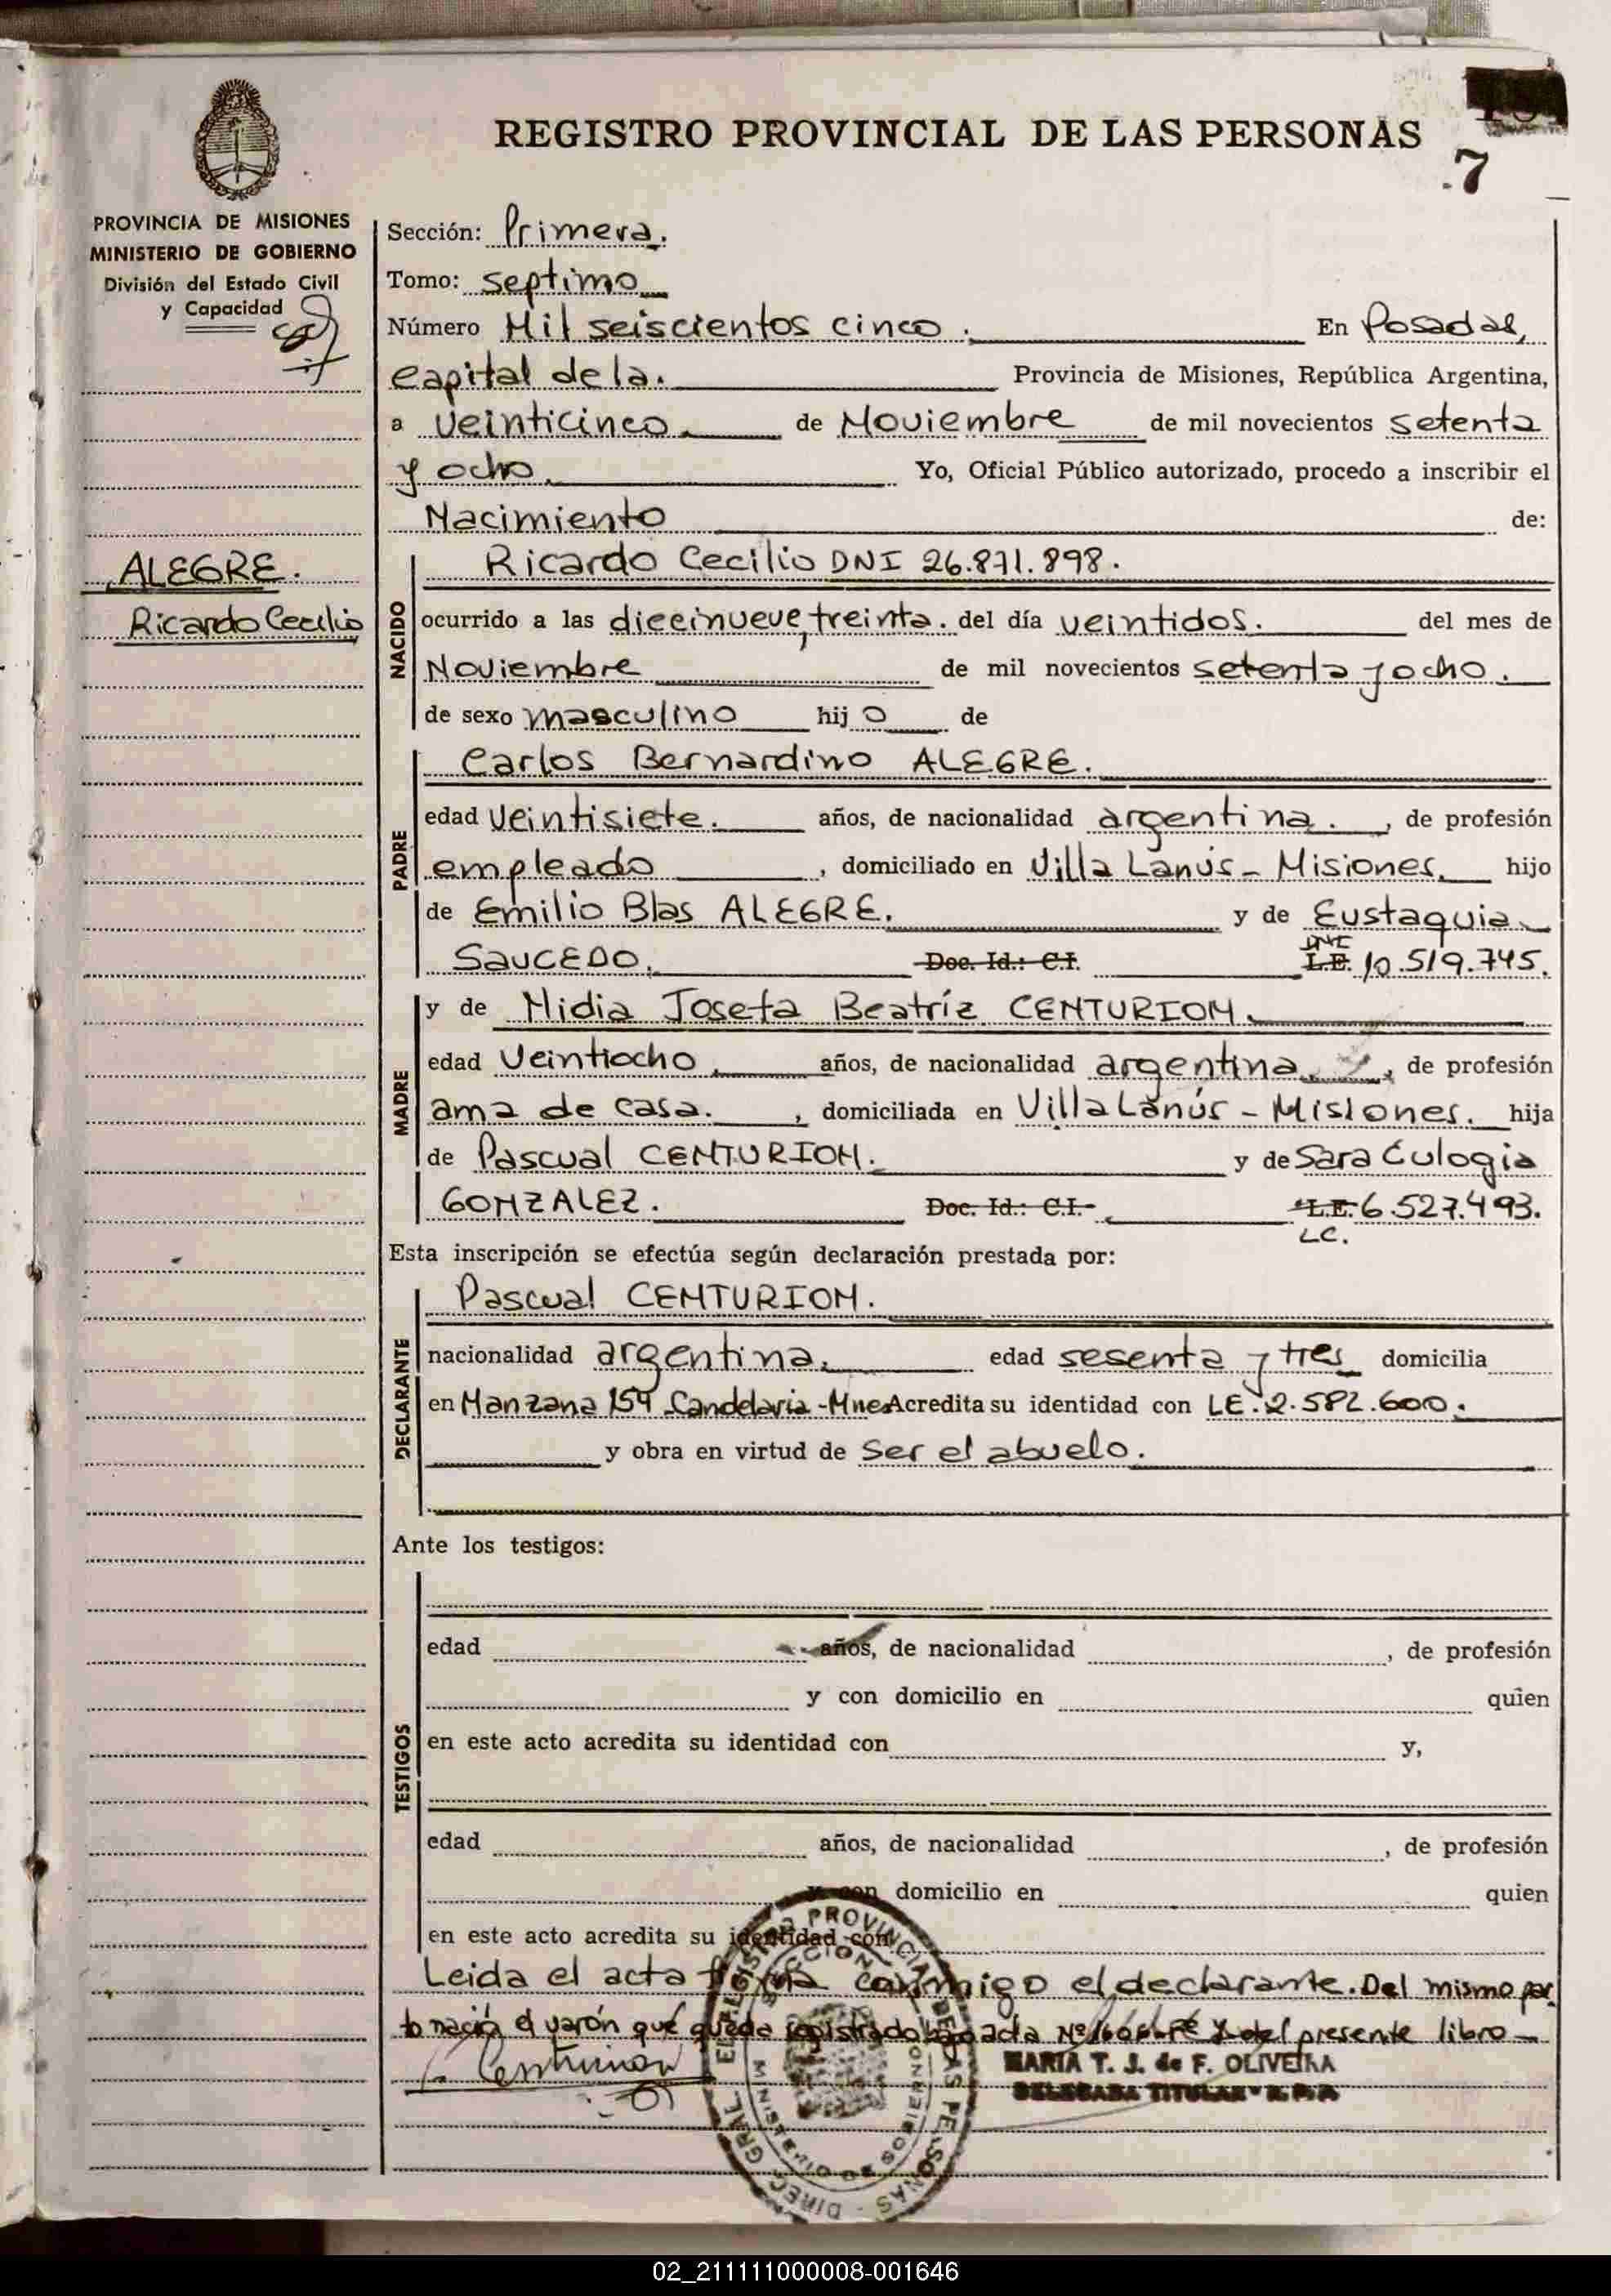 REGISTRO PROVINCIAL DE LAS PERSONAS
7
PROVINCIA DE MISIONES
MINISTERIO DE GOBIERNO
División del Estado Civil
y Capacidad
ALEGRE.
Ricardo Cecilio
Sección: Primera.
Tomo: septimo
Número Mil seiscientos cinco. En Posadas,
capital de la. Provincia de Misiones, República Argentina,
a veinticinco. de Noviembre de mil novecientos setenta
y ocho. Yo, Oficial Público autorizado, procedo a inscribir el
Nacimiento de:
NACIDO
Ricardo Cecilio DNI 26.871.898.
ocurrido a las diecinueve, treinta. del día veintidos. del mes de
Noviembre de mil novecientos setenta y ocho.
de sexo masculino hijo de
PADRE
Carlos Bernardino ALEGRE.
edad veintisiete. años, de nacionalidad argentina. , de profesión
empleado , domiciliado en Villa Lanús - Misiones. hijo
de Emilio Blas ALEGRE. y de Eustaquia
SAUCEDO. Doc. Id.: C.I. L.E. DNI 10.519.745.
MADRE
y de Nidia Josefa Beatríz CENTURION.
edad Veintiocho. años, de nacionalidad argentina. , de profesión
ama de casa. , domiciliada en Villa Lanús - Misiones. hija
de Pascual CENTURION. y de Sara Eulogia
GONZALEZ. Doc. Id.: C.I. L.E. 6.527.493.
LC.
Esta inscripción se efectúa según declaración prestada por:
DECLARANTE
Pascual CENTURION.
nacionalidad argentina. edad sesenta y tres domicilia
en Manzana 159 Candelaria - Mnes Acredita su identidad con LE. 2.582.600.
y obra en virtud de ser el abuelo.
Ante los testigos:
TESTIGOS
edad años, de nacionalidad , de profesión
y con domicilio en quien
en este acto acredita su identidad con y,
edad años, de nacionalidad , de profesión
y con domicilio en quien
en este acto acredita su identidad con
Leida el acta firma conmigo el declarante. Del mismo par
to nació el varón qué queda registrado bajo acta Nº del presente libro
Centurion
MARIA T. J. de F. OLIVEIRA
DELEGADA TITULAR R.P.P.
02_211111000008-001646